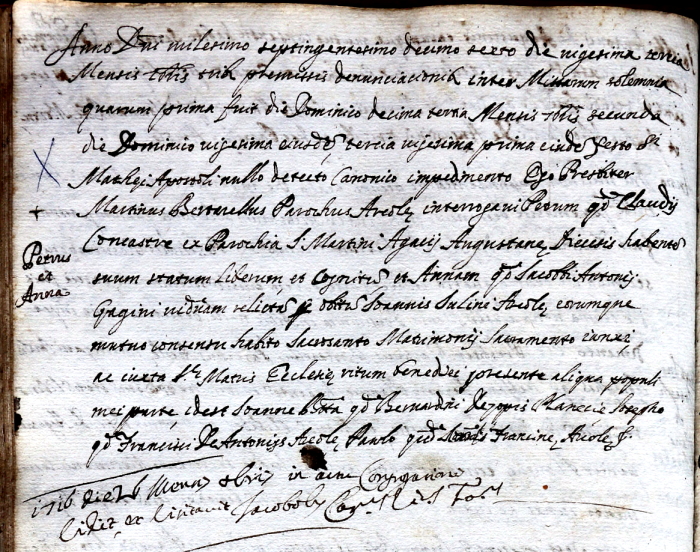 Anno Dni milesimo septingentesimo decimo sexto die vigesima tercia
Mensis 7bris trib premissis denunciationib inter Missarum solemnia
quarum prima fuit die Dominico decima tertia Mensis 7bris secunda
die Dominico vigesima eiusdē tercia vigesima prima eiusdē festo Sti
Mathei Apostoli nullo detecto Canonico impedimento Ego Presbiter
Martinus Bertarellus Parochus Arolę interrogavi Petrum qd Claudij
ex Parochia S. Martini Augustanę Diecesis habente
suum statum liberum et Cognitū et Annam qd Jacobbi Antonij
Gagini viduam relictā obitū Joannis Arolę eorumque
mutuo consensu habito Sacrosanto Matrimonij Sacramento iunxi
ac iuxta Stę Matris Ecclesię ritum benedixi presente aliqua populi
mei parte, id est Joanne Bta qd Bernardini
qd Francisci De Antonijs Arolę Paulo qd Francine, Arolę
Petrus
et
Anna
1716 die 26 Mensis 8bris in actu
Visitavit Jacobbus